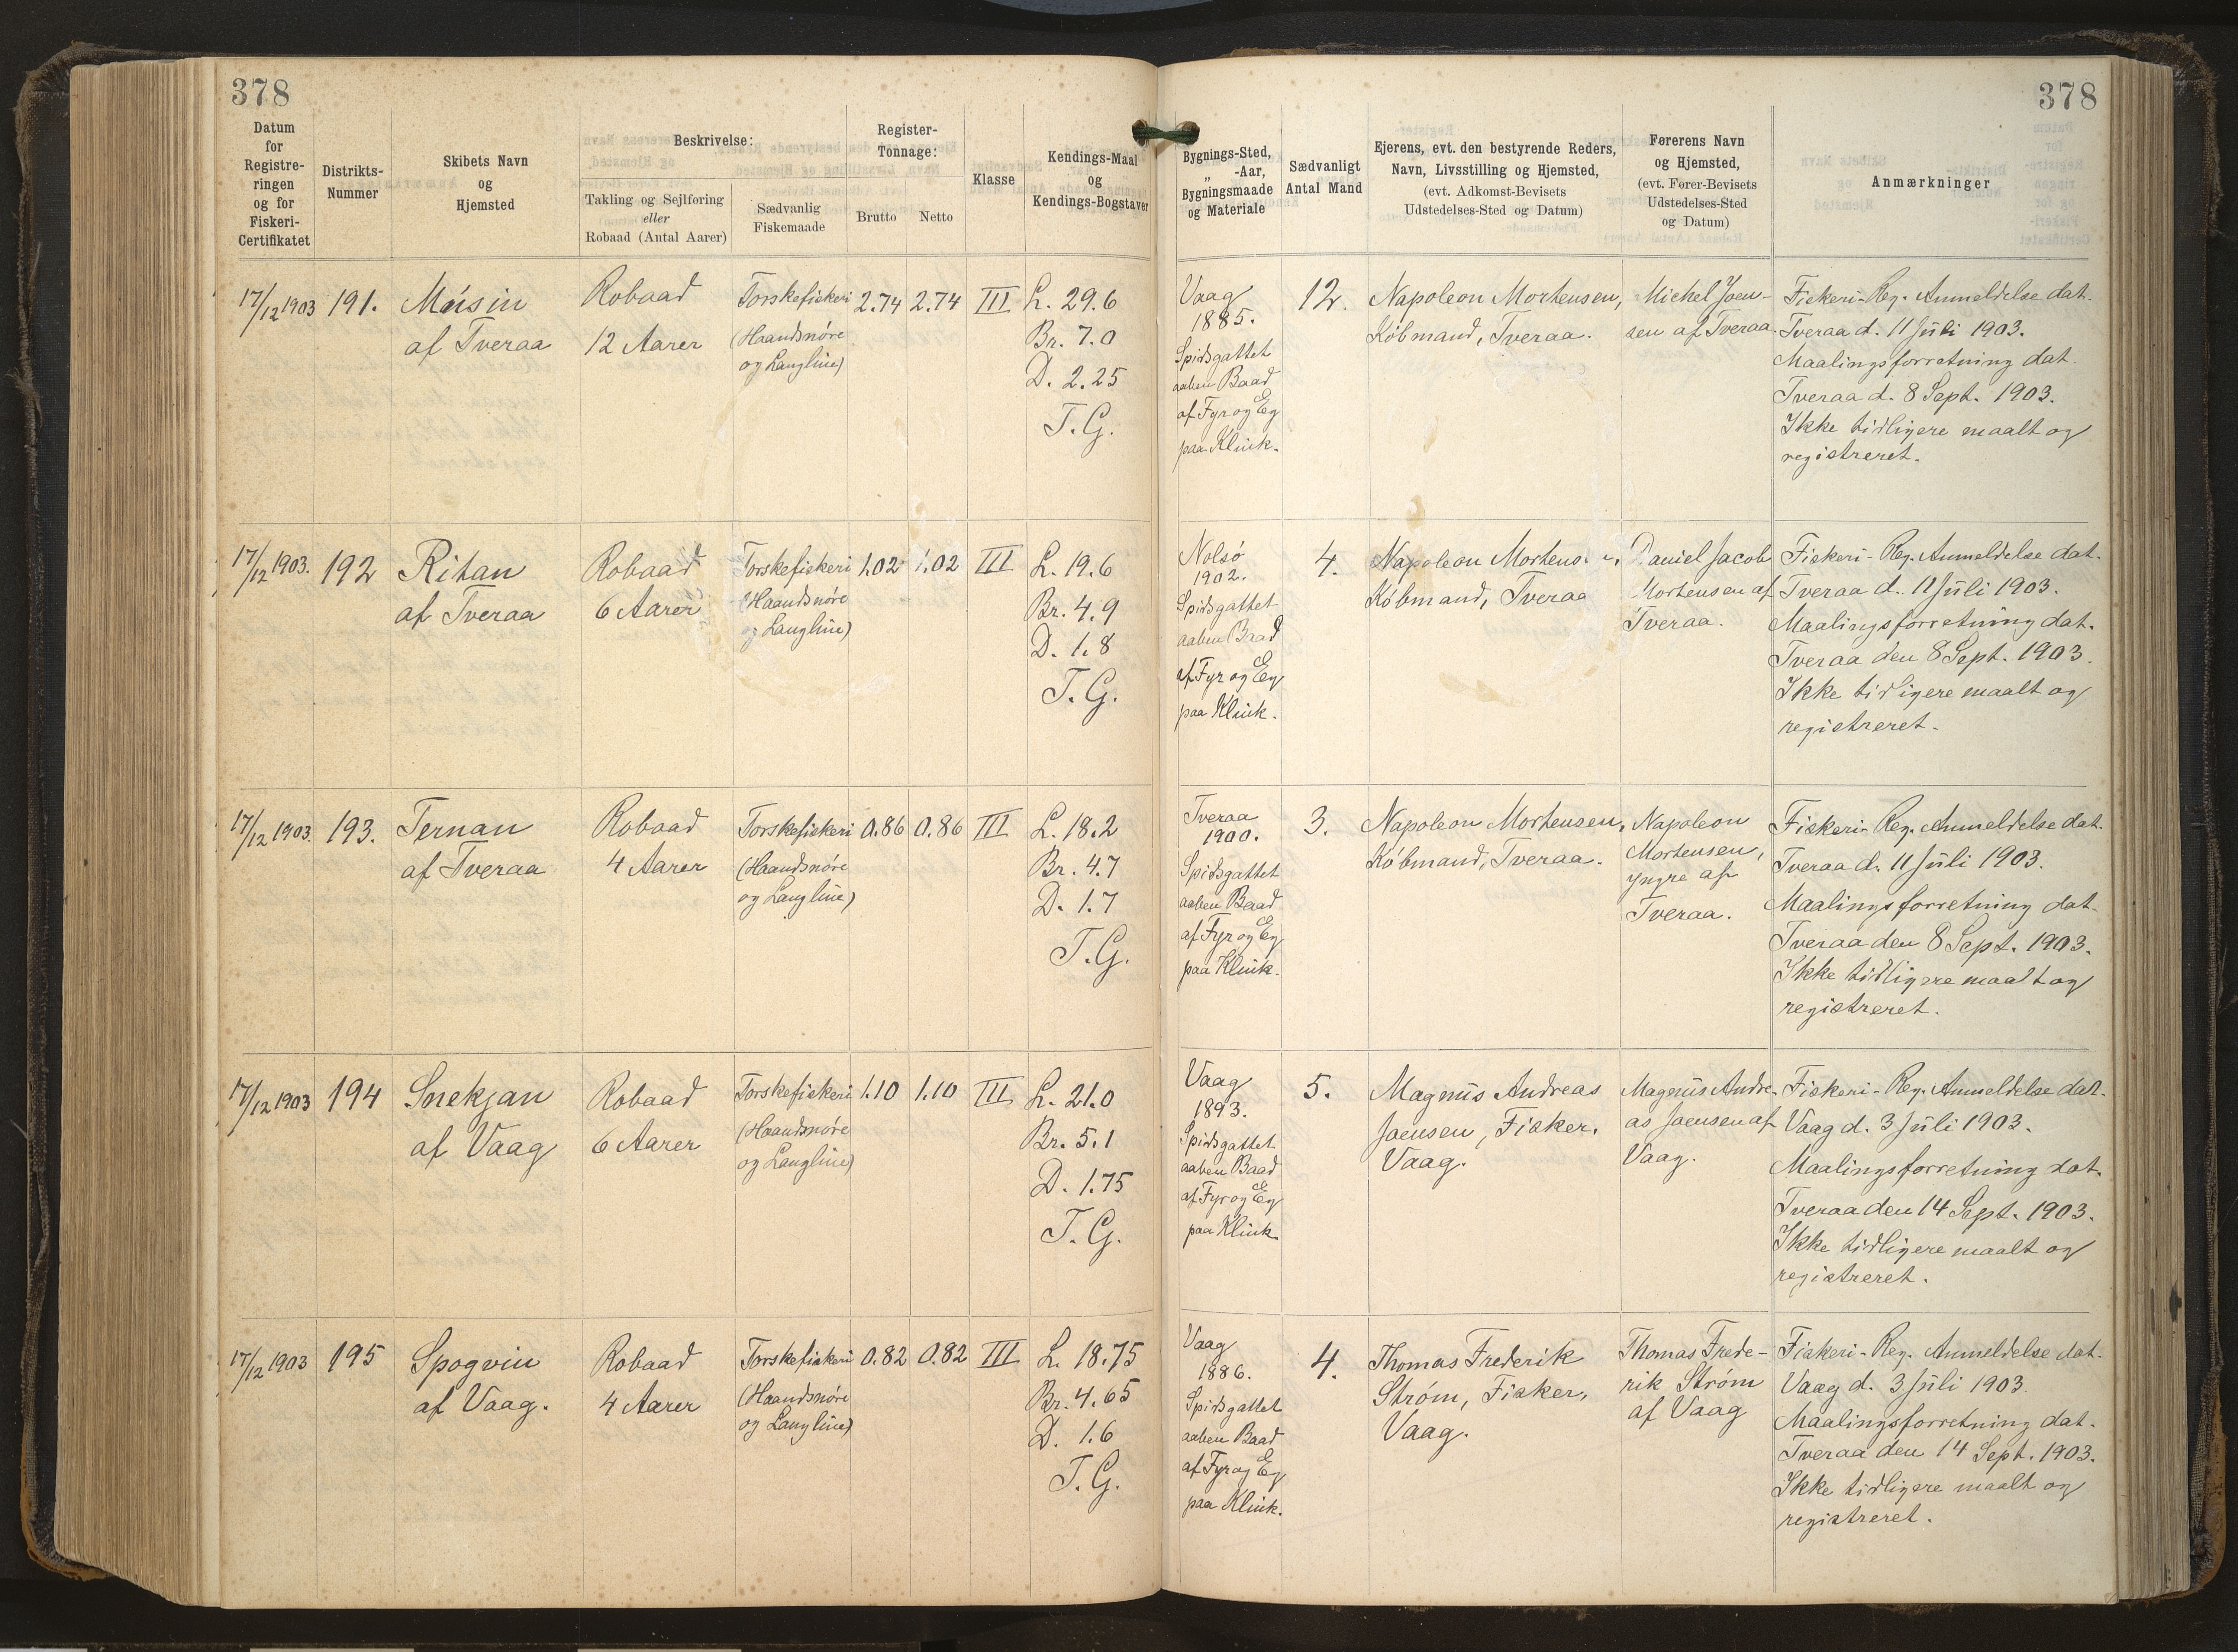 378
378
Datum
for
Registre-
ringen
og for
Fiskeri-
Certifikatet
Distrikts-
Nummer
Skibets Navn
og
Hjemsted
Beskrivelse:
Takling og Sejlføring
eller
Robaad (Antal Aarer)
Sædvanlig
Fiskemaade
Register-
Tonnage:
Brutto
Netto
Klasse
Kendings-Maal
og
Kendings-Bogstaver
Bygnings-Sted,
„ -Aar,
Bygningsmaade
og Materiale
Sædvanligt
Antal Mand
Ejerens, evt. den bestyrende Reders,
Navn, Livsstilling og Hjemsted,
(evt. Adkomst-Bevisets
Udstedelses-Sted og Datum)
Førerens Navn
og Hjemsted,
(evt. Fører-Bevisets
Udstedelses-Sted
og Datum)
Anmærkninger
17/12 1903
191.
Músin
af Tveraa
Robaad
12 Aarer
Torskefiskeri
(Haandsnøre
og Langline)
2.74
2.74
III
L. 29.6
Br. 7.0
D. 2.25
T.G.
Vaag
1885.
Spidsgattet
aaben Baad
af Fyr og Eg
paa Klink.
12.
Napoleon Mortensen,
Købmand, Tveraa.
Michel Joen-
sen af Tveraa.
Fiskeri-Reg. Anmeldelse dat.
Tveraa d. 11 Juli 1903.
Maalingsforretning dat.
Tveraa d. 8 Sept. 1903.
Ikke tidligere maalt og
registreret.
17/12 1903.
192
Ritan
af Tveraa
Robaad
6 Aarer
Torskefiskeri
(Haandsnøre
og Langline)
1.02
1.02
III
L. 19.6
Br. 4.9
D. 1.8
T.G.
Nolsø
1902.
Spidsgattet
aaben Baad
af Fyr og Eg
paa Klink.
4.
Napoleon Mortens. n,
Købmand, Tveraa
Daniel Jacob
Mortensen af
Tveraa.
Fiskeri-Reg. Anmeldelse dat.
Tveraa d. 11 Juli 1903.
Maalingsforretning dat.
Tveraa den 8 Sept. 1903.
Ikke tidligere maalt og
registreret.
17/12 1903.
193.
Ternan
af Tveraa
Robaad
4 Aarer
Torskefiskeri
(Haandsnøre
og Langline)
0.86
0.86
III
L. 18.2
Br. 4.7
D. 1.7
T.G.
Tveraa
1900.
Spidsgattet
aaben Baad
af Fyr og Eg
paa Klink.
3.
Napoleon Mortensen,
Købmand, Tveraa.
Napoleon
Mortensen,
yngre af
Tveraa.
Fiskeri-Reg. Anmeldelse dat.
Tveraa d. 11 Juli 1903.
Maalingsforretning dat.
Tveraa den 8 Sept. 1903.
Ikke tidligere maalt og
registreret.
17/12 1903
194
Snekjan
af Vaag
Robaad
6 Aarer
Torskefiskeri
(Haandsnøre
og Langline)
1.10
1.10
III
L. 21.0
Br. 5.1
D. 1.75
T.G.
Vaag
1893.
Spidsgattet
aaben Baad
af Fyr og Eg
paa Klink
5.
Magnus Andreas
Joensen, Fisker,
Vaag.
Magnus Andre-
as Joensen af
Vaag.
Fiskeri-Reg. Anmeldelse dat.
Vaag d. 3 Juli 1903.
Maalingsforretning dat.
Tveraa den 14 Sept. 1903.
Ikke tidligere maalt og
registreret.
17/12 1903
195
Spogvin
af Vaag.
Robaad
4 Aarer
Torskefiskeri
(Haandsnøre
og Langline)
0.82
0.82
III
L. 18.75
Br. 4.65
D. 1.6
T.G.
Vaag
1886.
Spidsgattet
aaben Baad
af Fyr og Eg
paa Klink.
4.
Thomas Frederik
Strøm, Fisker,
Vaag.
Thomas Frede-
rik Strøm
af Vaag
Fiskeri-Reg. Anmeldelse dat.
Vaag d. 3 Juli 1903.
Maalingsforretning dat.
Tveraa den 14 Sept. 1903.
Ikke tidligere maalt og
registreret.